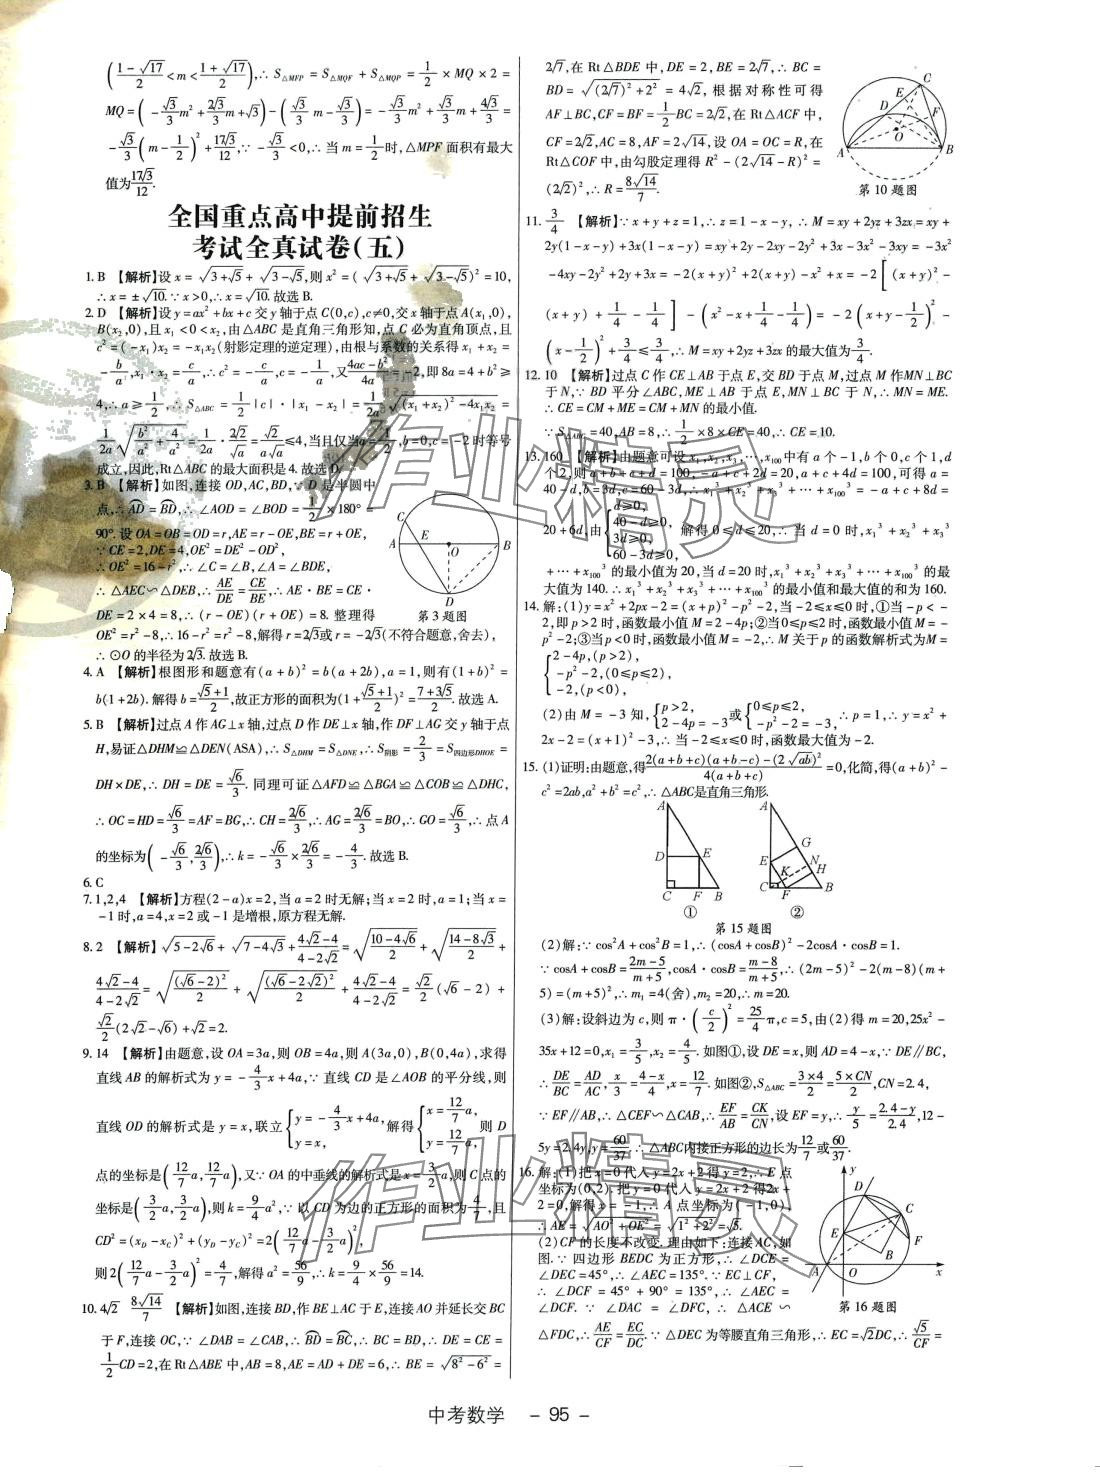 (\frac{1-\sqrt{17}}{2}<m<\frac{1+\sqrt{17}}{2}),∴ S△MFP = S△MQF + S△MQP = \frac{1}{2} × MQ × 2 =
MQ = (-\frac{\sqrt{3}}{3}m²+\frac{2\sqrt{3}}{3}m+\sqrt{3}) - (\frac{\sqrt{3}}{3}m-\frac{\sqrt{3}}{3}) = -\frac{\sqrt{3}}{3}m²+\frac{\sqrt{3}}{3}m+\frac{4\sqrt{3}}{3} =
-\frac{\sqrt{3}}{3}(m-\frac{1}{2})²+\frac{17\sqrt{3}}{12},∵ -\frac{\sqrt{3}}{3}<0,∴ 当 m=\frac{1}{2}时,△MPF 面积有最大
值为\frac{17\sqrt{3}}{12}.
全国重点高中提前招生
考试全真试卷(五)
1. B 【解析】设 x = \sqrt{3+\sqrt{5}} + \sqrt{3-\sqrt{5}},则 x² = (\sqrt{3+\sqrt{5}} + \sqrt{3-\sqrt{5}})² = 10,
∴ x = ±\sqrt{10}. ∵ x>0,∴ x = \sqrt{10}. 故选 B.
2. D 【解析】设 y = ax² + bx + c 交 y 轴于点 C(0,c),c≠0,交 x 轴于点 A(x₁,0),
B(x₂,0),且 x₁<0<x₂,由△ABC 是直角三角形知,点 C 必为直角顶点,且
c² = (-x₁)x₂ = -x₁x₂(射影定理的逆定理),由根与系数的关系得 x₁+x₂ =
-\frac{b}{a},x₁·x₂ = \frac{c}{a},∴ c² = -\frac{c}{a},c = -\frac{1}{a},又\frac{4ac-b²}{4a} = -2,即 8a = 4+b² ≥
4,∴ a ≥ \frac{1}{2},∴ S△ABC = \frac{1}{2}|c|·|x₁-x₂| = \frac{1}{2a}\sqrt{(x₁+x₂)²-4x₁x₂} =
\frac{1}{2a}\sqrt{\frac{b²}{a²}+\frac{4}{a²}} = \frac{1}{2a}·\frac{2\sqrt{2}}{\sqrt{a}} = \frac{\sqrt{2}}{a\sqrt{a}}≤4,当且仅当 a=\frac{1}{2},b=0,c=-2 时等号
成立,因此,Rt△ABC 的最大面积是 4. 故选 D.
3. B 【解析】如图,连接 OD,AC,BD,∵ D 是半圆中
点,∴ \overset{⌒}{AD} = \overset{⌒}{BD},∴ ∠AOD = ∠BOD = \frac{1}{2}×180° =
90°. 设 OA = OB = OD = r,AE = r-OE,BE = r+OE,
∵ CE = 2,DE = 4,OE² = DE² - OD²,
∴ OE² = 16-r²,∴ ∠C = ∠B,∠A = ∠BDE,
∴ △AEC∽△DEB,∴ \frac{AE}{DE} = \frac{CE}{BE},∴ AE·BE = CE·
DE = 2×4 = 8,∴ (r-OE)(r+OE) = 8. 整理得
第 3 题图
OE² = r²-8,∴ 16-r² = r²-8,解得 r = 2\sqrt{3}或 r = -2\sqrt{3}(不符合题意,舍去),
∴ ⊙O 的半径为 2\sqrt{3}. 故选 B.
4. A 【解析】根图形和题意有 (a+b)² = b(a+2b),a = 1,则有 (1+b)² =
b(1+2b). 解得 b = \frac{\sqrt{5}+1}{2},故正方形的面积为(1+\frac{\sqrt{5}+1}{2})² = \frac{7+3\sqrt{5}}{2}. 故选 A.
5. B 【解析】过点 A 作 AG⊥x 轴,过点 D 作 DE⊥x 轴,作 DF⊥AG 交 y 轴于点
H,易证△DHM≌△DEN(ASA),∴ S△DHM = S△DNE,∴ S阴影 = \frac{2}{3} = S四边形DHOE =
DH×DE,∴ DH = DE = \frac{\sqrt{6}}{3}. 同理可证△AFD≌△BGA≌△COB≌△DHC,
∴ OC = HD = \frac{\sqrt{6}}{3} = AF = BG,∴ CH = \frac{2\sqrt{6}}{3},∴ AG = \frac{2\sqrt{6}}{3} = BO,∴ GO = \frac{\sqrt{6}}{3},∴ 点 A
的坐标为(-\frac{\sqrt{6}}{3},\frac{2\sqrt{6}}{3}),∴ k = -\frac{\sqrt{6}}{3}×\frac{2\sqrt{6}}{3} = -\frac{4}{3}. 故选 B.
6. C
7. 1,2,4 【解析】方程(2-a)x = 2,当 a = 2 时无解;当 x = 2 时,a = 1;当 x =
-1 时,a = 4,x = 2 或 -1 是增根,原方程无解.
8. 2 【解析】\sqrt{5-2\sqrt{6}} + \sqrt{7-4\sqrt{3}} + \frac{4\sqrt{2}-4}{4-2\sqrt{2}} = \sqrt{\frac{10-4\sqrt{6}}{2}} + \sqrt{\frac{14-8\sqrt{3}}{2}} +
\frac{4\sqrt{2}-4}{4-2\sqrt{2}} = \sqrt{\frac{(\sqrt{6}-2)²}{2}} + \sqrt{\frac{(\sqrt{6}-2\sqrt{2})²}{2}} + \frac{4\sqrt{2}-4}{4-2\sqrt{2}} = \frac{\sqrt{2}}{2}(\sqrt{6}-2) +
\frac{\sqrt{2}}{2}(2\sqrt{2}-\sqrt{6})+\sqrt{2} = 2.
9. 14 【解析】由题意,设 OA = 3a,则 OB = 4a,则 A(3a,0),B(0,4a),求得
直线 AB 的解析式为 y = -\frac{4}{3}x+4a,∵ 直线 CD 是∠AOB 的平分线,则
直线 OD 的解析式是 y = x,联立{y = -\frac{4}{3}x+4a, y = x, 解得{x = \frac{12}{7}a, y = \frac{12}{7}a, 则 D
点的坐标是(\frac{12}{7}a,\frac{12}{7}a),又∵ OA 的中垂线的解析式是 x = \frac{3}{2}a,则 C 点的
坐标是(\frac{3}{2}a,\frac{3}{2}a),则 k = \frac{9}{4}a²,∵ 以 CD 为边的正方形的面积为\frac{4}{7},且
CD² = (x_D-x_C)²+(y_D-y_C)² = 2(\frac{12}{7}a-\frac{3}{2}a)²,
则 2(\frac{12}{7}a-\frac{3}{2}a)² = \frac{4}{7},解得 a² = \frac{56}{9},∴ k = \frac{9}{4}×\frac{56}{9} = 14.
10. 4\sqrt{2} \frac{8\sqrt{14}}{7} 【解析】如图,连接 BD,作 BE⊥AC 于 E,连接 AO 并延长交 BC
于 F,连接 OC,∵ ∠DAB = ∠CAB,∴ \overset{⌒}{BD} = \overset{⌒}{BC},∴ BC = BD,∴ DE = CE =
\frac{1}{2}CD = 2,在 Rt△ABE 中,AB = 8,AE = AD+DE = 6,∴ BE = \sqrt{8²-6²} =
2\sqrt{7},在 Rt△BDE 中,DE = 2,BE = 2\sqrt{7},∴ BC =
BD = \sqrt{(2\sqrt{7})²+2²} = 4\sqrt{2},根据对称性可得
AF⊥BC,CF = BF = \frac{1}{2}BC = 2\sqrt{2},在 Rt△ACF 中,
CF = 2\sqrt{2},AC = 8,AF = 2\sqrt{14},设 OA = OC = R,在
Rt△COF 中,由勾股定理得 R²-(2\sqrt{14}-R)² =
(2\sqrt{2})²,∴ R = \frac{8\sqrt{14}}{7}.
第 10 题图
11. \frac{3}{4} 【解析】∵ x+y+z = 1,∴ z = 1-x-y,∴ M = xy+2yz+3zx = xy+
2y(1-x-y)+3x(1-x-y) = xy+2y-2xy-2y²+3x-3x²-3xy = -3x²
-4xy-2y²+2y+3x = -2(x+y)²+2(x+y)-x²+x = -2[(x+y)²-
(x+y)+\frac{1}{4}-\frac{1}{4}]-(x²-x+\frac{1}{4}-\frac{1}{4}) = -2(x+y-\frac{1}{2})²-
(x-\frac{1}{2})²+\frac{3}{4}≤\frac{3}{4},∴ M = xy+2yz+3zx 的最大值为\frac{3}{4}.
12. 10 【解析】过点 C 作 CE⊥AB 于点 E,交 BD 于点 M,过点 M 作MN⊥BC
于 N,∵ BD 平分∠ABC,ME⊥AB 于点 E,MN⊥BC 于 N,∴ MN = ME.
∴ CE = CM+ME = CM+MN 的最小值.
∵ S△ABC = 40,AB = 8,∴ \frac{1}{2}×8×CE = 40,∴ CE = 10.
13. 160 【解析】由题意可设 x₁,x₂,x₃,…,x₁₀₀中有 a 个-1,b 个 0,c 个 1,d
个 2,则 a+b+c+d = 100,-a+c+2d = 20,a+c+4d = 100,可得 a =
40-d,b = 3d,c = 60-3d,∴ x₁³+x₂³+x₃³+…+x₁₀₀³ = -a+c+8d =
20+6d,由{d≥0, 40-d≥0, 3d≥0, 60-3d≥0, 解得 0≤d≤20,∴ 当 d = 0 时,x₁³+x₂³+x₃³
+…+x₁₀₀³ 的最小值为 20,当 d = 20 时,x₁³+x₂³+x₃³+…+x₁₀₀³ 的最
大值为 140. ∴ x₁³+x₂³+x₃³+…+x₁₀₀³ 的最小值和最大值的和为 160.
14. 解:(1)y = x²+2px-2 = (x+p)²-p²-2,当-2≤x≤0 时,①当-p<-
2,即 p>2 时,函数最小值 M = 2-4p;②当 0≤p≤2 时,函数最小值 M = -
p²-2;③当 p<0 时,函数最小值 M = -2,∴ M 关于 p 的函数解析式为M =
{2-4p,(p>2),
-p²-2,(0≤p≤2),
-2,(p<0),
(2)由 M = -3 知,{p>2, 2-4p = -3或{0≤p≤2, -p²-2 = -3,∴ p = 1,∴ y = x²+
2x-2 = (x+1)²-3,∴ 当-2≤x≤0 时,函数最大值为-2.
15. (1)证明:由题意,得\frac{2(a+b+c)(a+b-c)-(2\sqrt{ab})²}{4(a+b+c)} = 0,化简,得(a+b)²-
c² = 2ab,a²+b² = c²,∴ △ABC是直角三角形.
① ②
第 15 题图
(2)解:∵ cos²A+cos²B = 1,∴ (cosA+cosB)²-2cosA·cosB = 1.
∵ cosA+cosB = \frac{2m-5}{m+5},cosA·cosB = \frac{m-8}{m+5},∴ (2m-5)²-2(m-8)(m+
5) = (m+5)²,∴ m₁ = 4(舍),m₂ = 20,∴ m = 20.
(3)解:设斜边为 c,则 π·(\frac{c}{2})² = \frac{25}{4}π,c = 5,由(2)得 m = 20,25x²-
35x+12 = 0,x₁ = \frac{3}{5},x₂ = \frac{4}{5}. 如图①,设 DE = x,则 AD = 4-x,∵ DE∥BC,
∴ \frac{DE}{BC} = \frac{AD}{AC},\frac{x}{3} = \frac{4-x}{4},x = \frac{12}{7}. 如图②,S△ABC = \frac{3×4}{2} = \frac{5×CN}{2},CN = 2.4,
∵ EF∥AB,∴ △CEF∽△CAB,∴ \frac{EF}{AB} = \frac{CK}{CN},设 EF = y,∴ \frac{y}{5} = \frac{2.4-y}{2.4},12-
5y = 2.4y,y = \frac{60}{37}. ∴ △ABC内接正方形的边长为\frac{12}{7}或\frac{60}{37}.
16. 解:(1)把 x = 0 代入 y = 2x+2 得 y = 2,∴ E 点
坐标为(0,2). 把 y = 0 代入 y = 2x+2 得2x+
2 = 0,解得 x = -1,∴ A 点坐标为(-1,0),
∴ AE = \sqrt{AO²+OE²} = \sqrt{1²+2²} = \sqrt{5}.
(2)CF 的长度不改变. 理由如下:连接 AC,如
图. ∵ 四边形 BEDC 为正方形,∴ ∠DCE =
∠DEC = 45°,∴ ∠AEC = 135°. ∵ EC⊥CF,
∴ ∠DCF = 45°+90° = 135°,∴ ∠AEC =
∠DCF. ∵ ∠DAC = ∠DFC,∴ △ACE∽
第 16 题图
△FDC,∴ \frac{AE}{CF} = \frac{EC}{DC}. ∵ △DEC 为等腰直角三角形,∴ EC = \sqrt{2}DC,∴ \frac{\sqrt{5}}{CF} =
中考数学 - 95 -
作业精灵
作业精灵